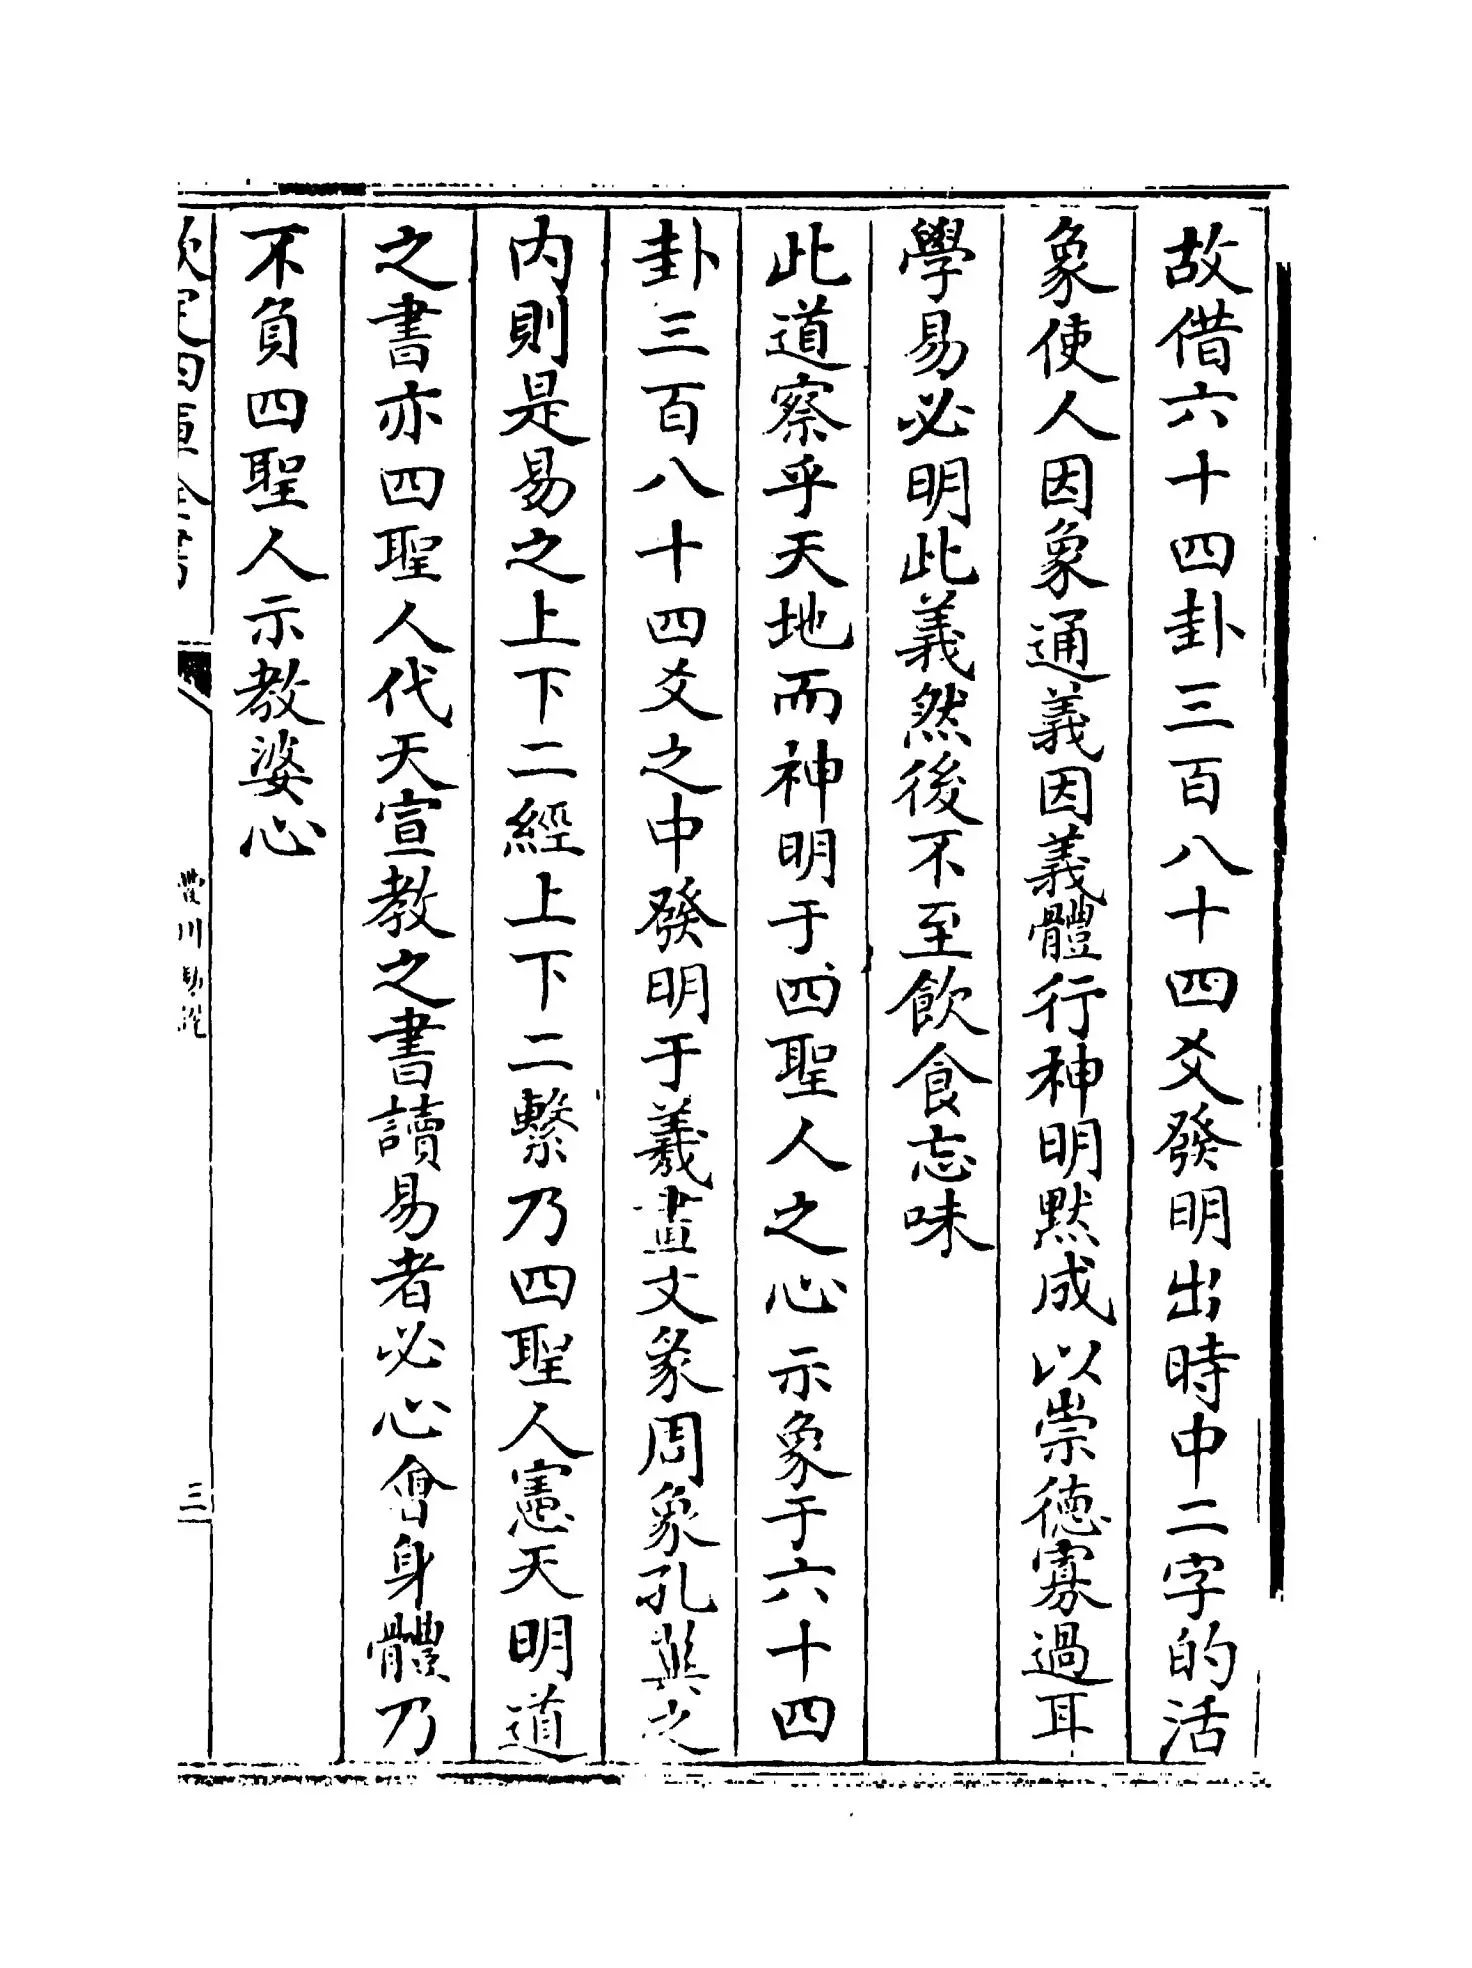 故借六十四卦三百八十四爻發明出時中二字的活
象使人因象通義因義體行神明黙成以崇德寡過耳
學易必明此義然後不至飲食忘味
此道察乎天地而神明于四聖人之心示象于六十四
卦三百八十四爻之中發明于羲畫文彖周象孔翼之
内則是易之上下二經上下二繫乃四聖人憲天明道
之書亦四聖人代天宣教之書讀易者必心會身體乃
不負四聖人示教婆心
欽定四庫全書
豐川易說
三